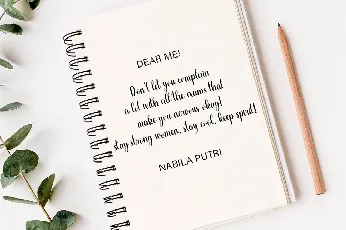 DEAR ME!
Don't let you complain
a lot with all the exams that
make you nervous okay!
stay strong women, stay cool, keep spirit!
NABILA PUTRI